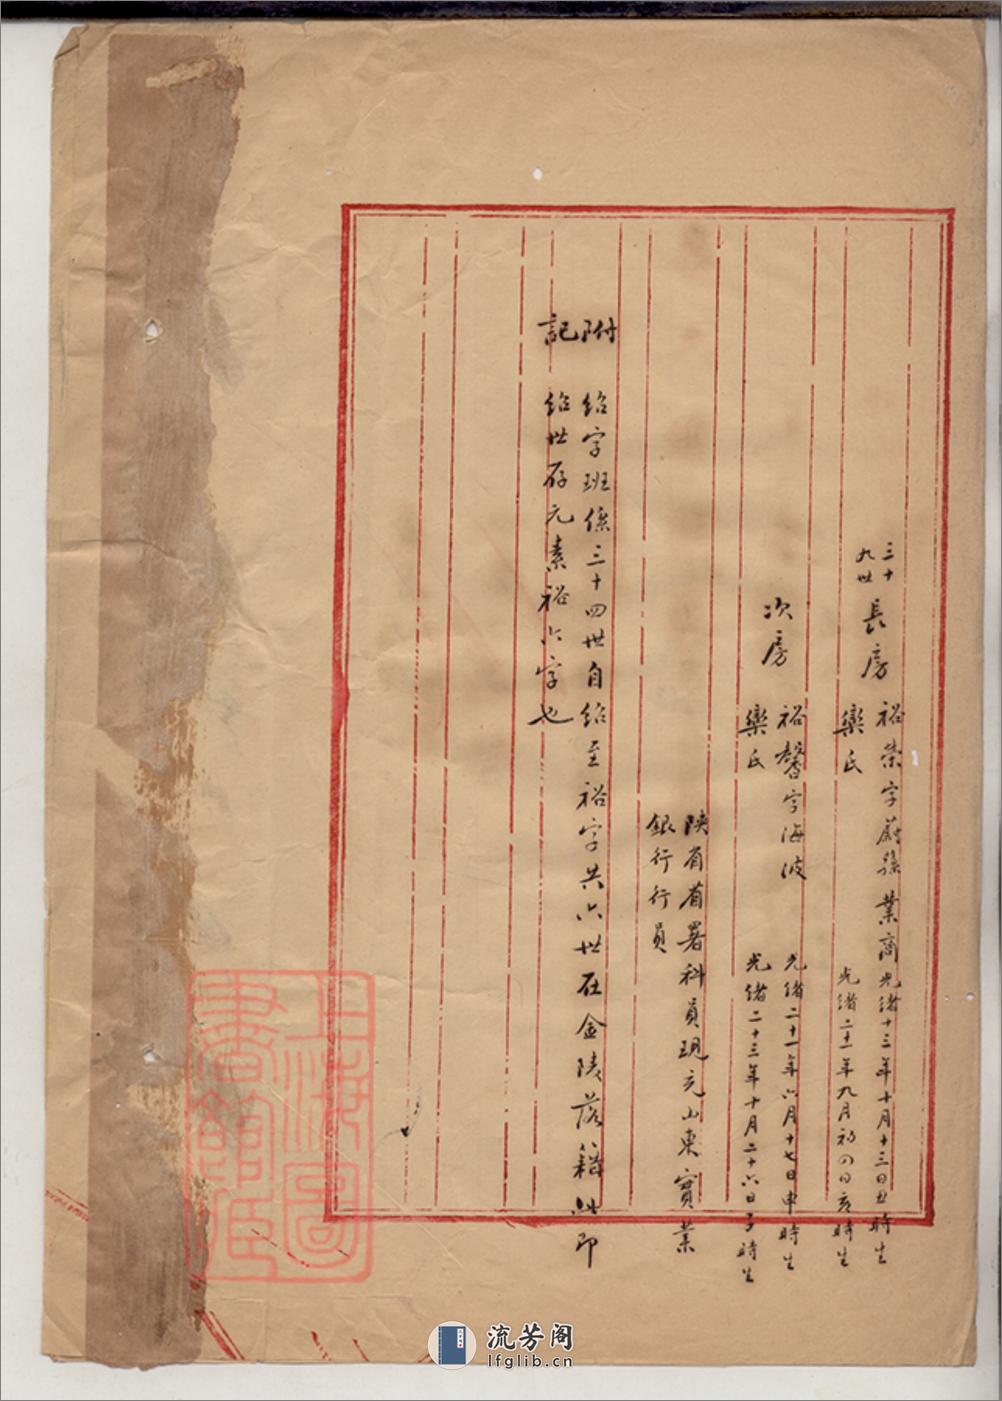 三十
九世
長房
裕荣字蔚孫業商光緒十三年十月十三日丑時生
欒氏
光緒二十一年九月初四日亥時生
次房
裕馨字海波
光緒二十一年六月十七日申時生
欒氏
光緒二十三年十月二十六日子時生
陝省省署科員現充山東實業
銀行行員
附記
紹字班係三十四世自紹至裕字共六世在金陵落籍此即
紹世存元素裕六字也
上海圖
書館臧
流芳阁
lfglib.cn